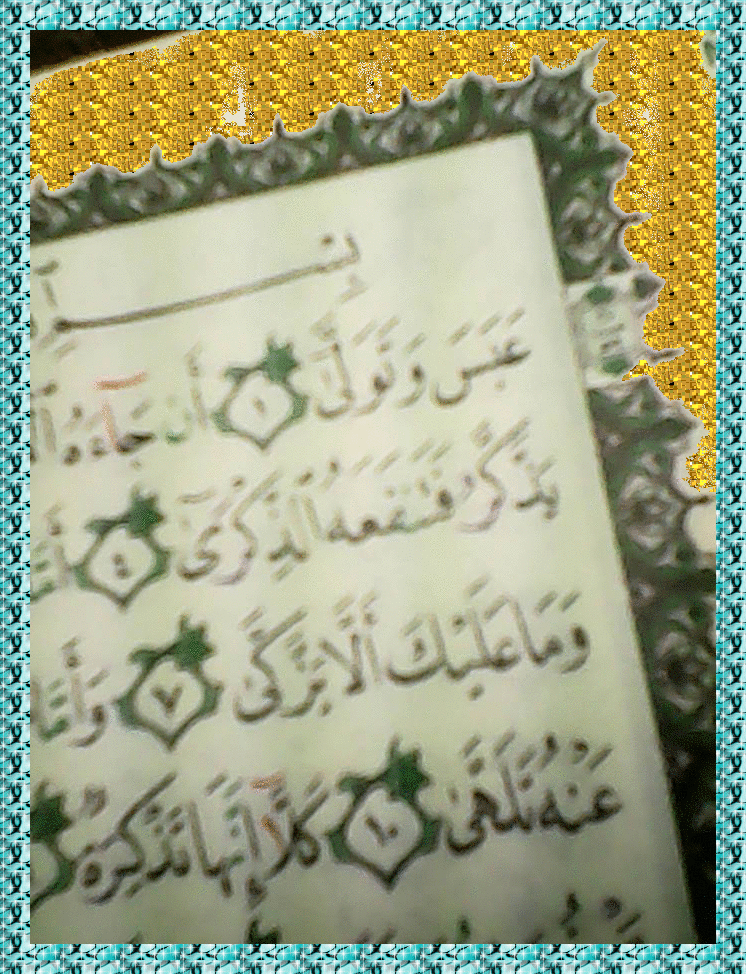 بِسْـــــ
عَبَسَ وَتَوَلَّىٰٓ ١ أَن جَآءَهُ
يَذَّكَّرُ فَتَنفَعَهُ ٱلذِّكْرَىٰٓ ٤
وَمَا عَلَيْكَ أَلَّا يَزَّكَّىٰ ٧ وَأَمَّا
عَنْهُ تَلَهَّىٰ ١٠ كَلَّآ إِنَّهَا تَذْكِرَةٌ